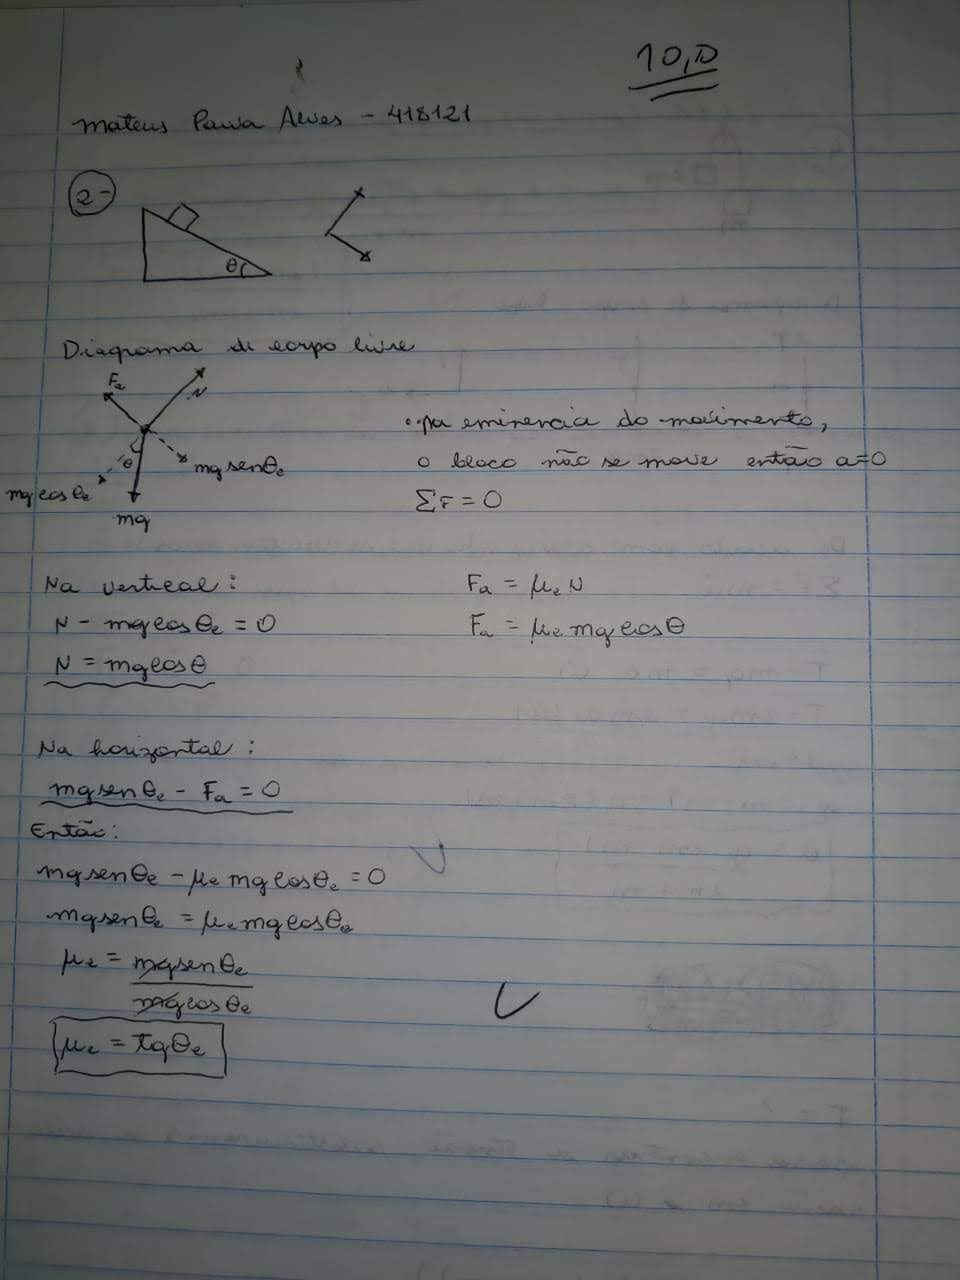 10,0
Mateus Paiva Alves - 418121
2-
θ
Diagrama de corpo livre
Fa
N
θ
mg senθe
mg cosθe
mg
• na eminencia do movimento,
o bloco não se move então a=0
ΣF = 0
Na vertical:
N - mg cosθe = 0
N = mg cosθ
Fa = μe N
Fa = μe mg cosθ
Na horizontal:
mg senθe - Fa = 0
Então:
mg senθe - μe mg cosθe = 0
mg senθe = μe mg cosθe
μe = mg senθe
mg cosθe
μe = tgθe